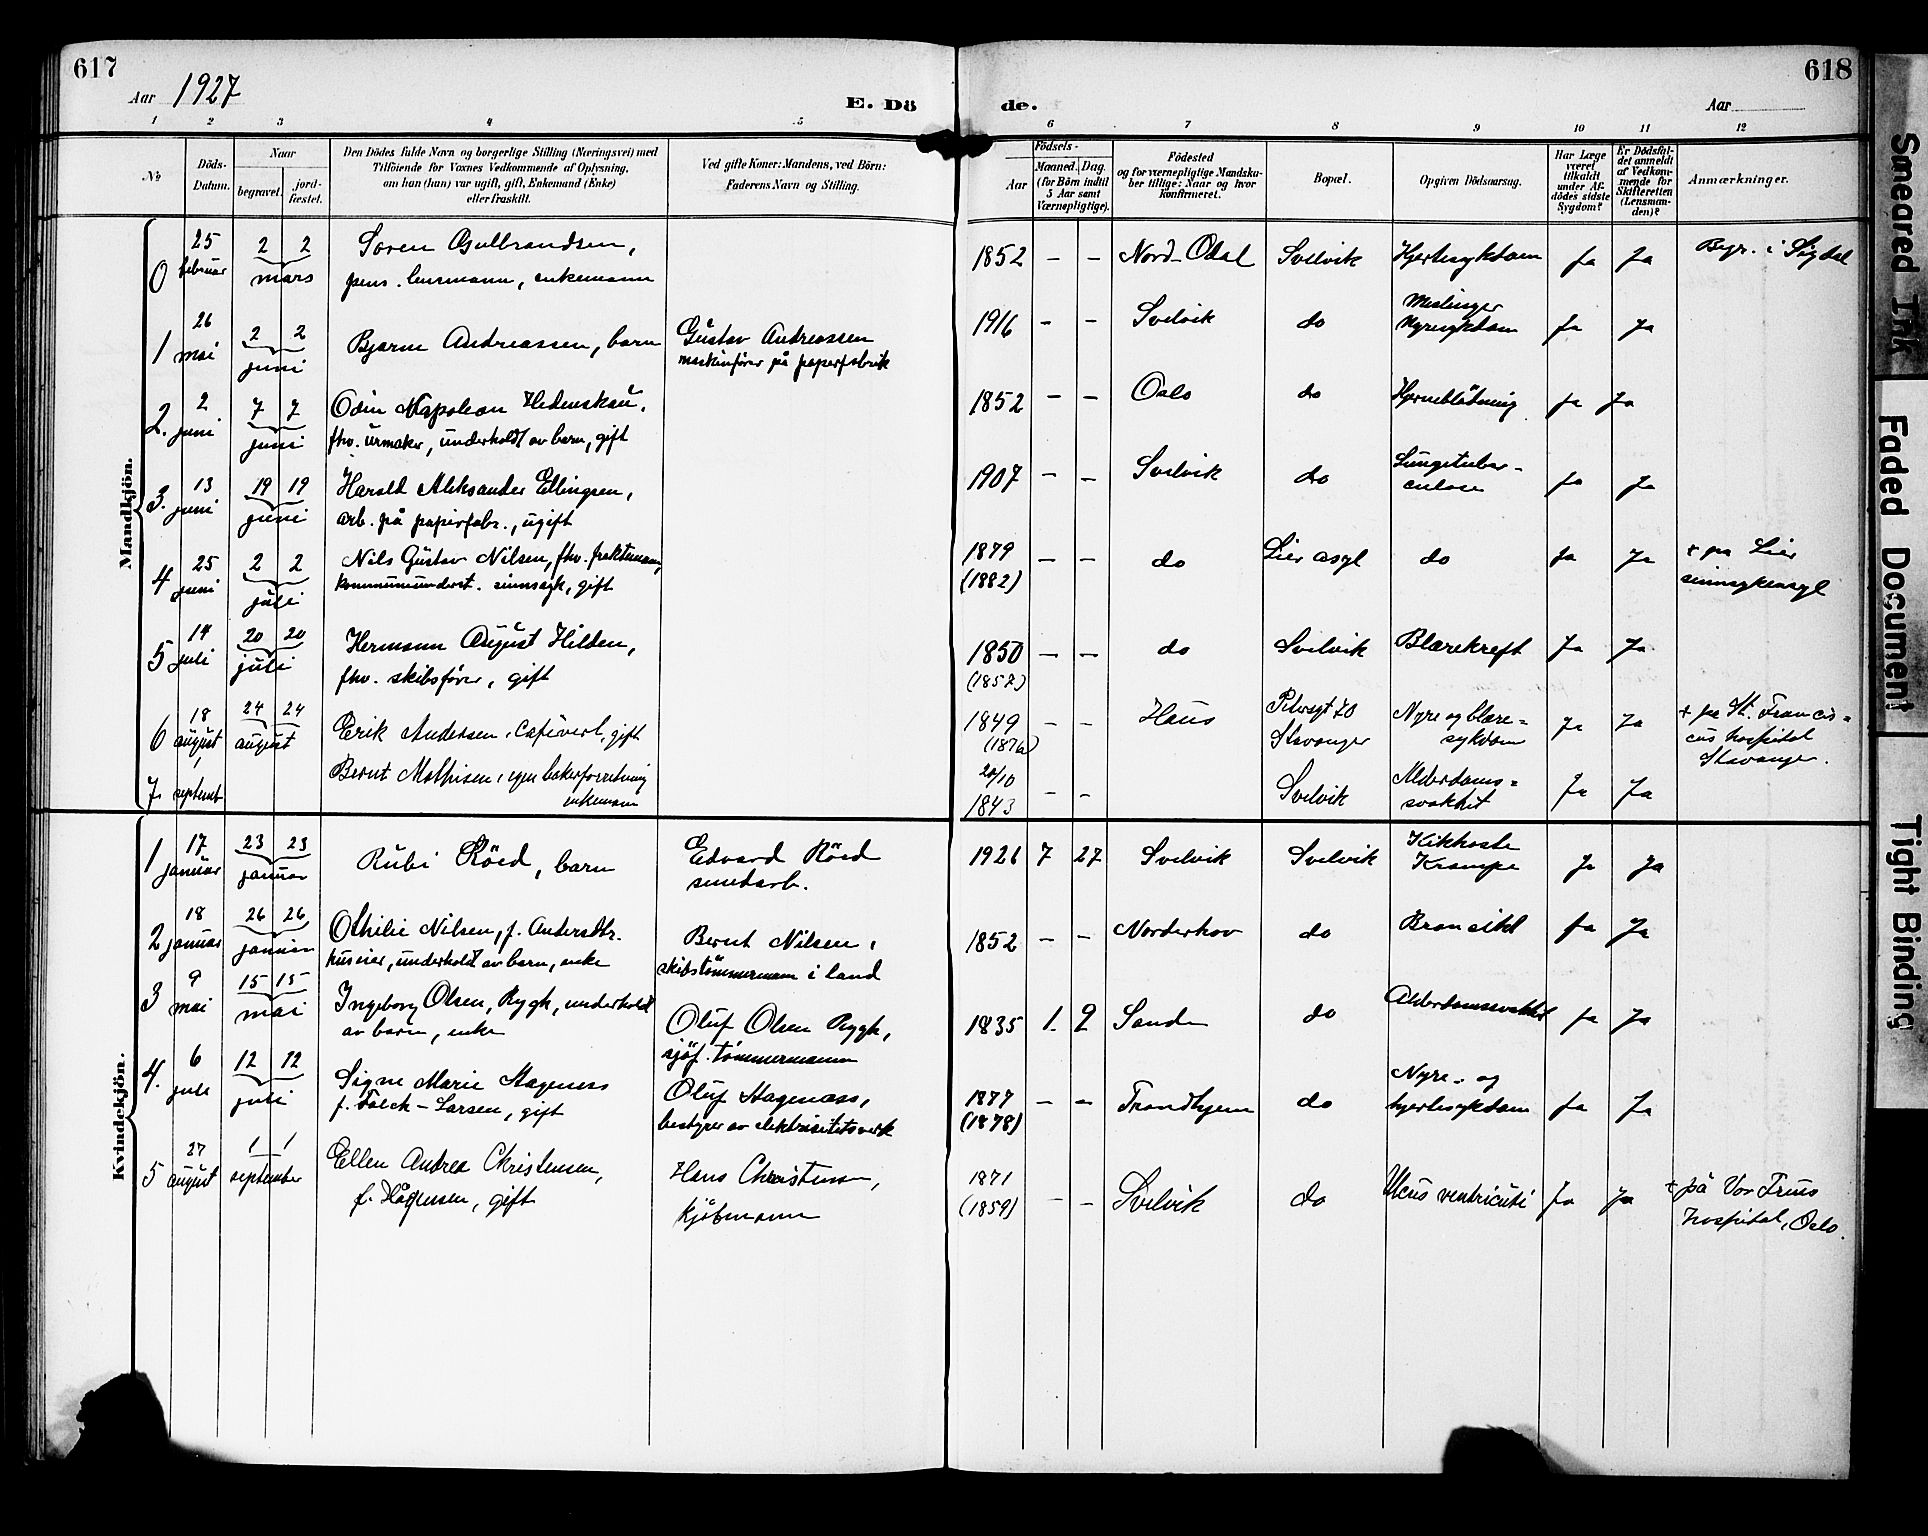 617
618
Aar 1927
E. Dö
de.
Aar
1 2 3 4 5 6 7 8 9 10 11 12
No
Döds-
Datum.
Naar
begravet.
jord-
fæstet.
Den Dödes fulde Navn og borgerlige Stilling (Næringsvei) med
Tilföiende for Voxnes Vedkommende af Oplysning,
om han (hun) var ugift, gift, Enkemand (Enke)
eller fraskilt.
Ved gifte Koner: Mandens, ved Börn:
Faderens Navn og Stilling.
Födsels-
Aar
Maaned. Dag.
(for Börn indtil
5 Aar samt
Værnepligtige).
Födested
og for værnepligtige Mandska-
ber tillige: Naar og hvor
konfirmeret.
Bopæl.
Opgiven Dödsaarsag.
Har Læge
været
tilkaldt
under Af-
dödes sidste
Sygdom?
Er Dödsfal-
det anmeldt
af Vedkom-
mende for
Skifteretten
(Lensman-
den)?
Anmærkninger.
Mandkjön.
0 25 februar 2 2 mars Soren Gulbrandsen,
pens. lensmann, enkemann
1852 - - Nord-Odal Svelvik Hjertesykdom Ja Ja Begr. i Sigdal
1 26 mai 2 2 juni Bjarne Andreassen, barn Gustav Andreassen
maskinfører på papirfabrik
1916 - - Svelvik do Meslinger
Nyresykdom Ja Ja
2. 2 juni 7 7 juni Odin Napoleon Hedenskau,
fhv. urmaker, underholdt av barn, gift
1852 - - Oslo do Hjerneblødning Ja Ja
3. 13 juni 19 19 juni Harald Aleksander Ellingsen,
arb. på papirfabr., ugift
1907 - - Svelvik do Lungetuber-
culose Ja Ja
4 25 juni 2 2 juli Nils Gustav Nilsen, fhv. fraktemann
kommuneunderst. sinnssyk, gift
1879
(1882) - - do Lier asyl do Ja Ja + på Lier
sinnsykeasyl
5 14 juli 20 20 juli Hermann August Hilden,
fhv. skibsfører, gift
1850
(1852) - - do Svelvik Blærekreft Ja Ja
6 18 august 24 24 august Erik Andersen, cafévert, gift
1849
(1876) - - Haus
Stavanger Nyre og blære=
sykdom Ja Ja + på St. Francis=
cus hospital
Stavanger.
7. septemt Bernt Mathisen, egen bakerforretning
enkemann
20/10
1843 - - Svelvik Alderdoms=
svakhet Ja Ja
Kvindekjön.
1 17 januar 23 23 januar Rubi Röed, barn Edvard Röed
smedarb.
1926 7 27 Svelvik Svelvik Kikhoste
Krampe Ja Ja
2 18 januar 26 26 januar Othilie Nilsen, f. Andersdtr.
huseier, underholdt av barn, enke
Bernt Nilsen,
skibstömmermann i land
1852 - - Norderhov do Ja Ja
3 9 mai 15 15 mai Ingeborg Olsen, Rygh, underholdt
av barn, enke
Oluf Olsen Rygh,
sjöf. tömmermann
1835 1. 9 Sande do Alderdomssvakhet Ja Ja
4. 6 juli 12 12 juli Signe Marie Hageness
f. Falck-Larsen, gift
Oluf Hagenæss,
bestyrer av elektrisitetsverk
1877
(1878) - - Trondhjem do Nyre- og
hjertesykdom Ja Ja
5 27 august 1 1 september Ellen Andrea Christensen,
gift
Hans Christensen,
kjöbmann
1871
(1859) - - Svelvik do Ulcus ventriculi Ja Ja + på Vor Frues
hospital, Oslo.
Smeared Ink
Faded Document
Tight Binding